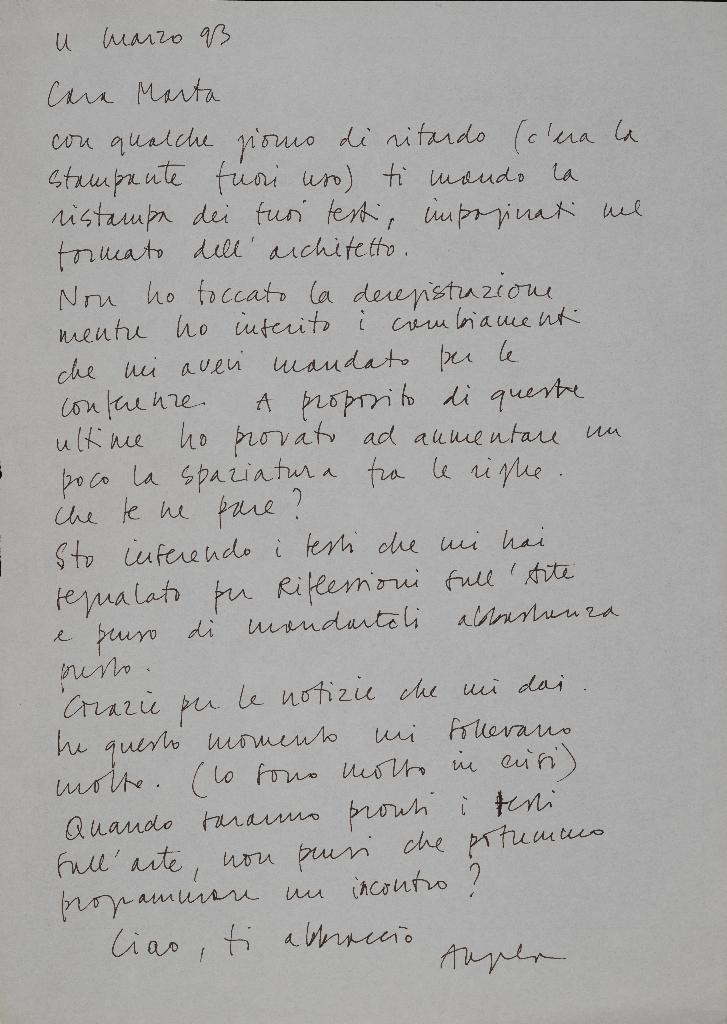 11 marzo 93
Cara Marta
con qualche giorno di ritardo (c'era la
stampante fuori uso) ti mando la
ristampa dei tuoi testi, impaginati nel
formato dell'architetto.
Non ho toccato la deregistrazione
mentre ho inserito i cambiamenti
che mi avevi mandato per le
conferenze. A proposito di queste
ultime ho provato ad aumentare un
poco la spaziatura fra le righe.
che te ne pare?
Sto inserendo i testi che mi hai
segnalato per Riflessioni sull'Arte
e penso di mandarteli abbastanza
presto.
Grazie per le notizie che mi dai.
In questo momento mi sollevano
molto. (Io sono molto in crisi)
Quando saranno pronti i testi
sull'arte, non pensi che potremmo
programmare un incontro?
Ciao, ti abbraccio
Angela